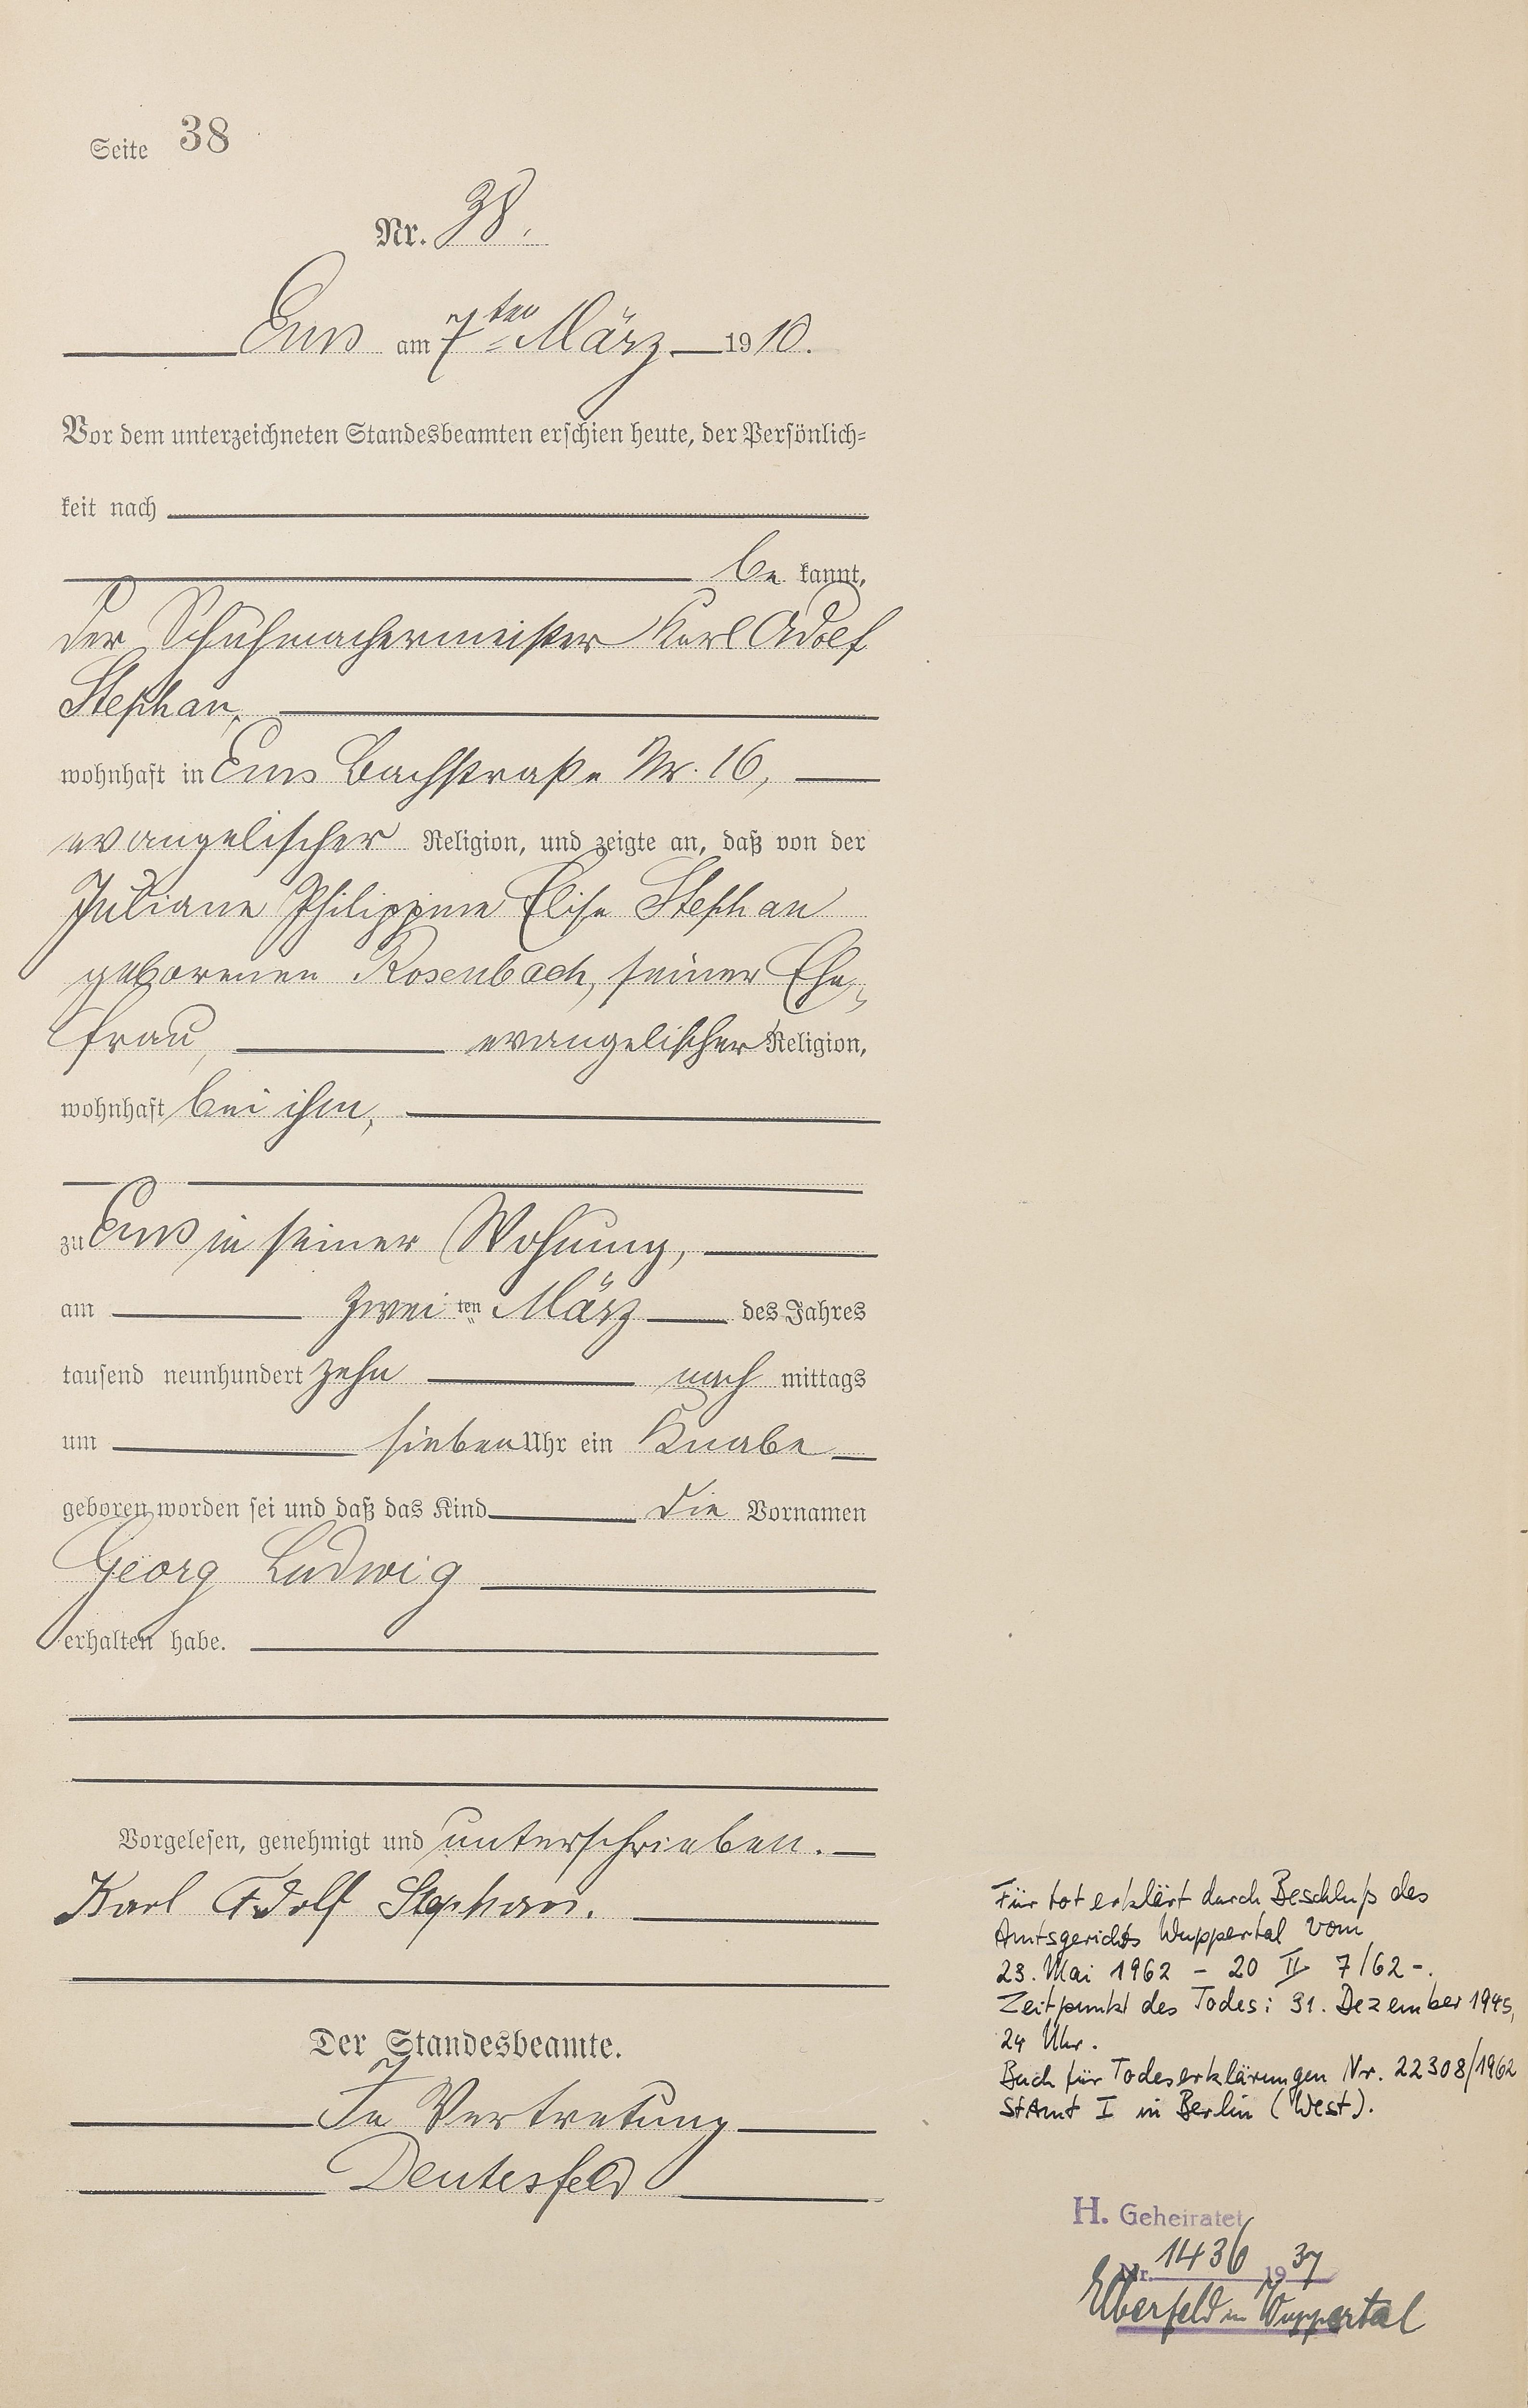 Seite 38
Nr. 38.
Ems am 7ten März 1910.
Vor dem unterzeichneten Standesbeamten erschien heute, der Persönlich-
keit nach
be kannt,
der Schuhmachermeister Karl Adolf
Stephan,
wohnhaft in Ems Bachstraße Nr. 16,
evangelischer Religion, und zeigte an, daß von der
Juliane Philippine Elise Stephan
geborenen Rosenbach, seiner Ehe-
frau, evangelischer Religion,
wohnhaft bei ihm,
zu Ems in seiner Wohnung,
am zwei ten März des Jahres
tausend neunhundert zehn nach mittags
um sieben Uhr ein Knabe
geboren worden sei und daß das Kind die Vornamen
Georg Ludwig
erhalten habe.
Vorgelesen, genehmigt und unterschrieben.
Karl Adolf Stephan.
Der Standesbeamte.
In Vertretung
Deutesfeld
Für tot erklärt durch Beschluß des
Amtsgerichts Wuppertal vom
23. Mai 1962 - 20 II 7/62 -.
Zeitpunkt des Todes: 31. Dezember 1945,
24 Uhr.
Buch für Todeserklärungen Nr. 22308/1962
StAmt I in Berlin (West).
H. Geheiratet
Nr. 1436 1937
Elberfeld in Wuppertal